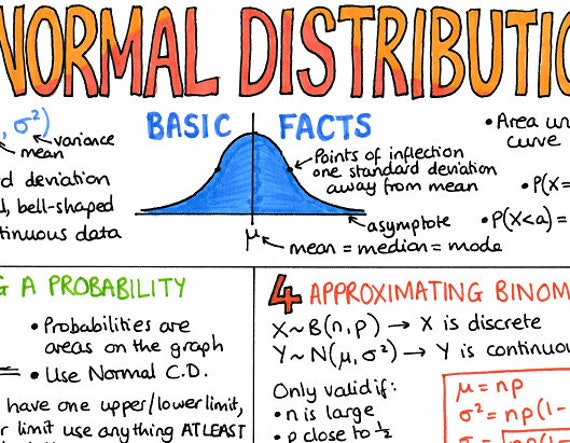 NORMAL DISTRIBUTIO
, σ²)
variance
mean
d deviation
, bell-shaped
tinuous data
BASIC FACTS
Points of inflection
one standard deviation
away from mean
asymptote
μ
mean = median = mode
• Area un
curve
• P(X=
• P(X<a) =
G A PROBABILITY
• Probabilities are
areas on the graph
• Use Normal C.D.
have one upper/lower limit,
r limit use anything AT LEAST
4 APPROXIMATING BINOM
X~B(n,p) → X is discrete
Y~N(μ,σ²) → Y is continuou
Only valid if:
• n is large
• p close to ½
μ = np
σ² = np(1-